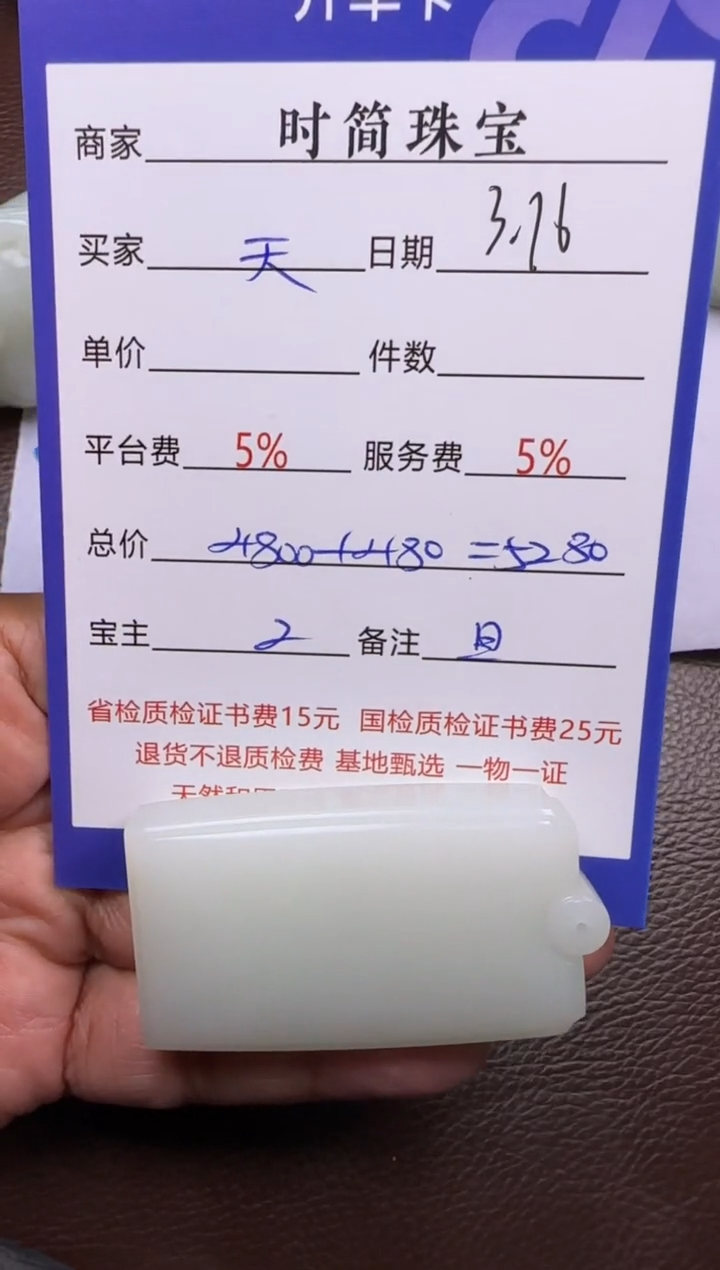 开车卡
商家 时简珠宝
买家 天 日期 3.26
单价 件数
平台费 5% 服务费 5%
总价 4800+480=5280
宝主 2 备注
省检质检证书费15元 国检质检证书费25元
退货不退质检费 基地甄选 一物一证
天然和田